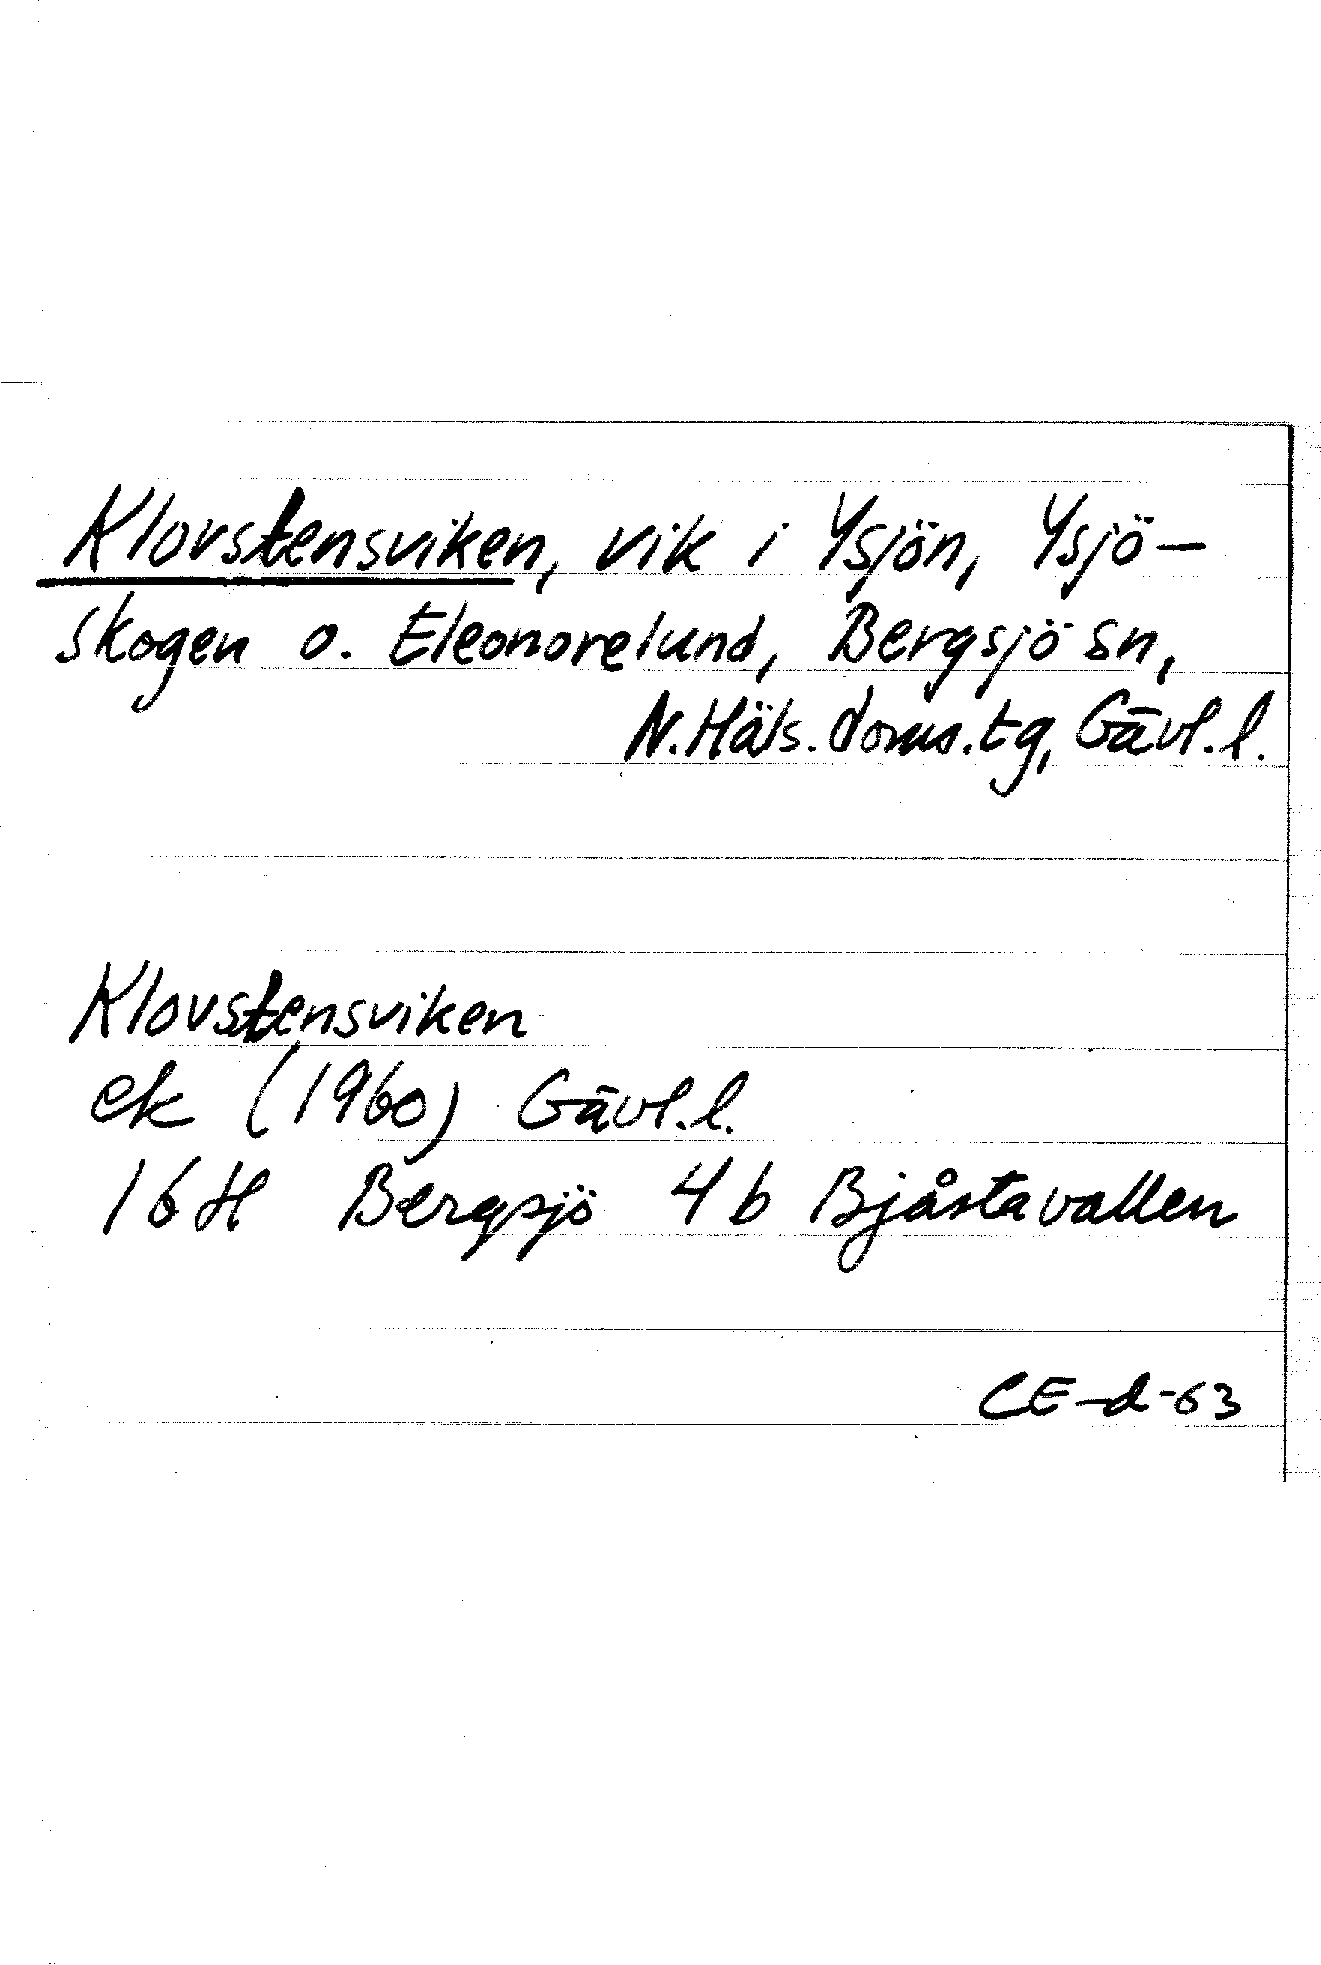 Klovstensviken, vik i Ysjön, Ysjö-
skogen o. Eleonorelund, Bergsjö sn,
N.Häls.doms.tg, Gävl.l.
Klovstensviken
ek (1960) Gävl.l.
16H Bergsjö 4b Bjåstavallen
CE-d-63